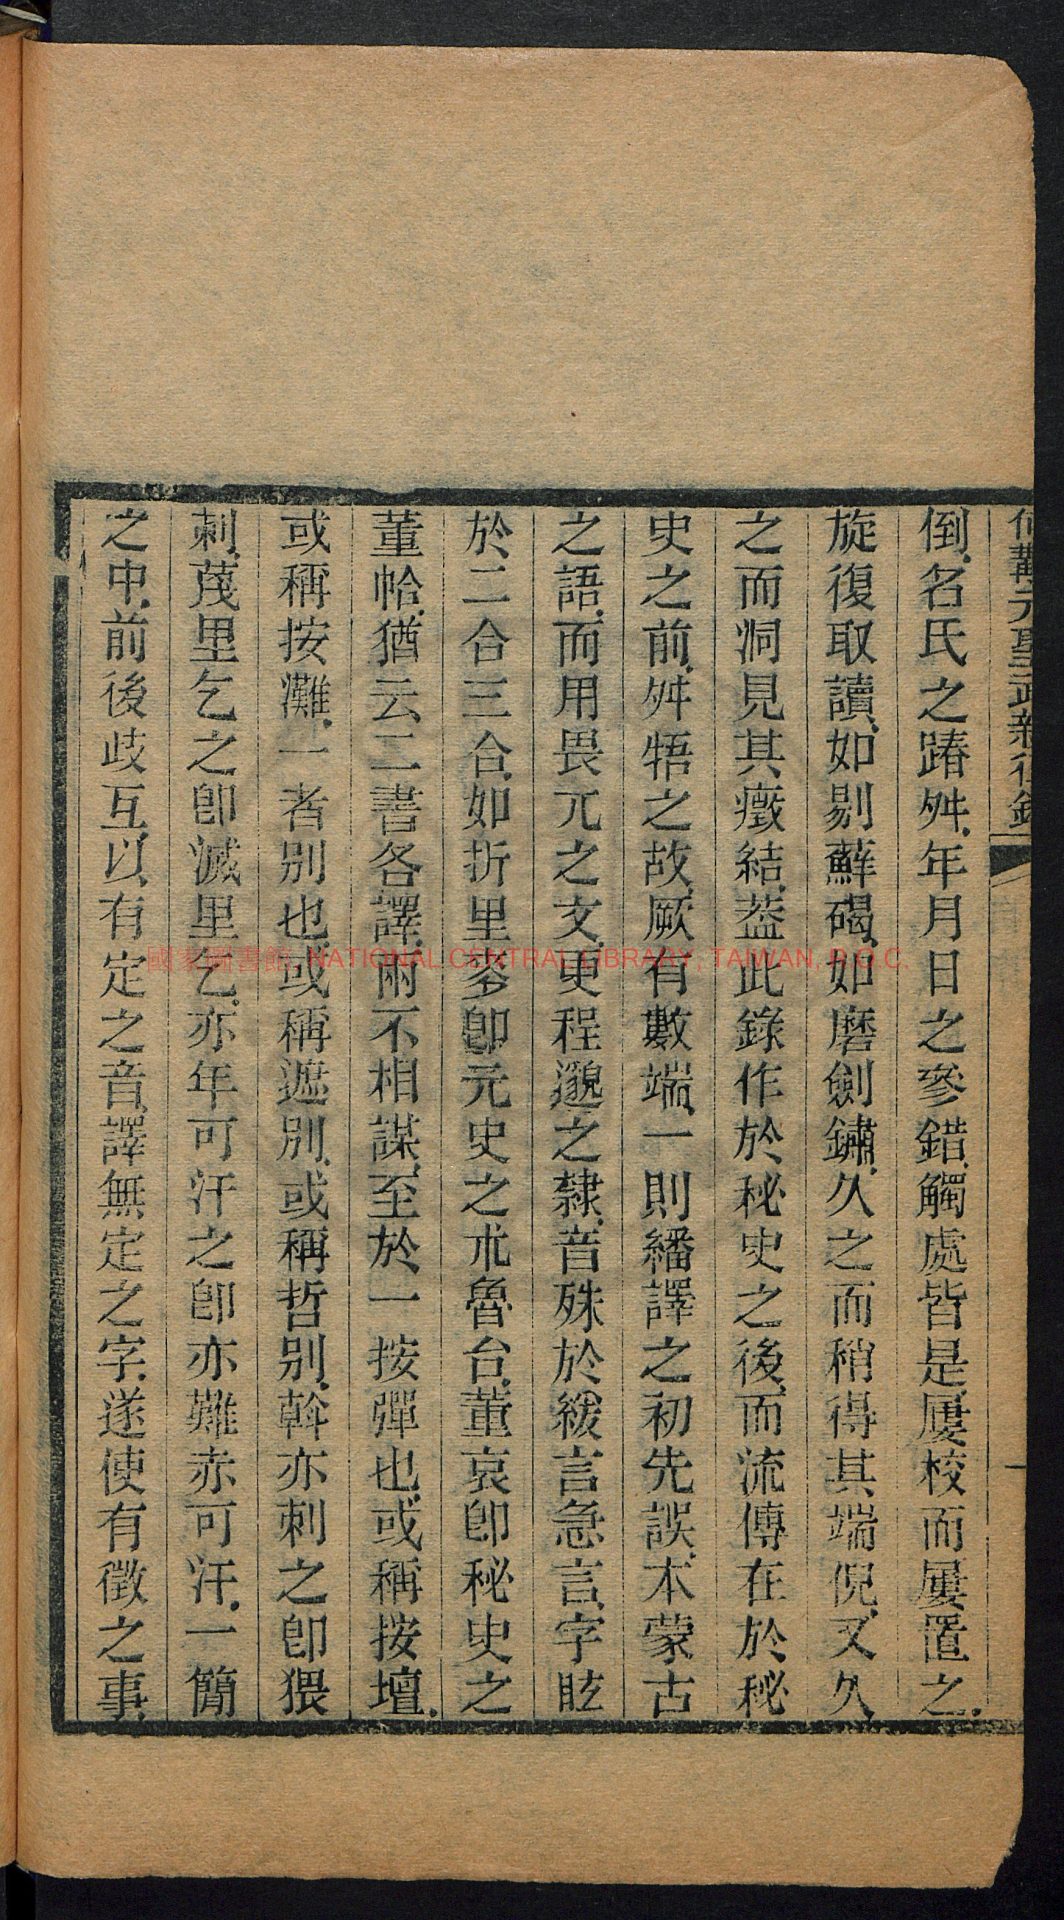 倒名氏之踳舛年月日之參錯觸處皆是屢校而屢置之
旋復取讀如剔蘚碣如磨劍鏽久之而稍得其端倪又久
之而洞見其癥結葢此錄作於秘史之後而流傳在於秘
史之前舛牾之故厥有數端一則繙譯之初先誤本蒙古
之語而用畏兀之文更程邈之隸音殊於緩言急言字眩
於二合三合如折里麥卽元史之朮魯台董哀卽秘史之
董帢猶云二書各譯兩不相謀至於一按彈也或稱按壇
或稱按灘一者別也或稱遮別或稱哲別斡亦刺之卽猥
刺蔑里乞之卽滅里乞亦年可汗之卽亦難赤可汗一簡
之中前後歧互以有定之音譯無定之字遂使有徵之事
國家圖書館 NATIONAL CENTRAL LIBRARY, TAIWAN, R.O.C.